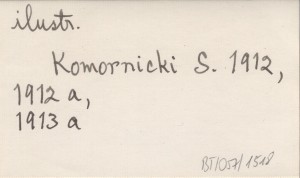 ilustr.
Komornicki S. 1912,
1912 a,
1913 a
BT/057/1518